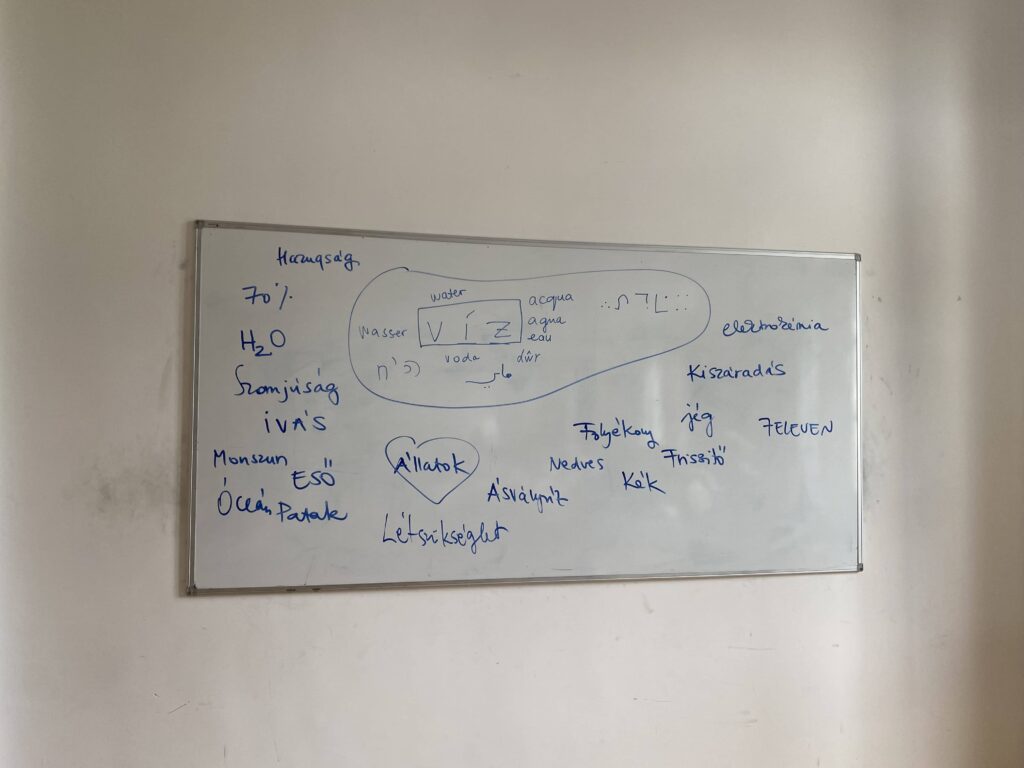 Hazugság
70%
H₂O
Szomjúság
IVÁS
Monszun
ESŐ
Óceán Patak
water
wasser
VÍZ
acqua
agua
eau
voda
dŵr
Állatok
Létszükséglet
Ásványvíz
Folyékony
Nedves
jég
Frissítő
Kék
elektrokémia
Kiszáradás
7ELEVEN